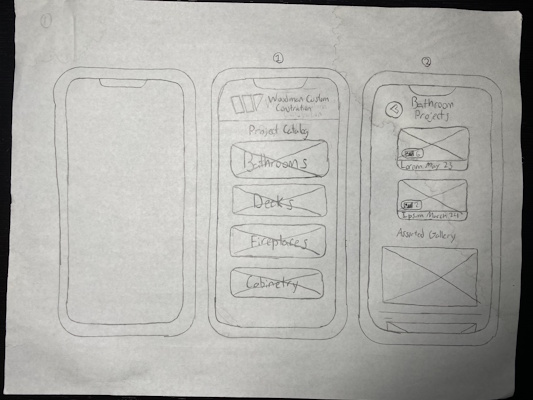 ①
Woodman Custom
Constration
Project Catalog
Bathrooms
Decks
Fireplaces
Cabinetry
②
Bathroom
Projects
Lorem May 23
Ipsum March 24
Assorted Gallery